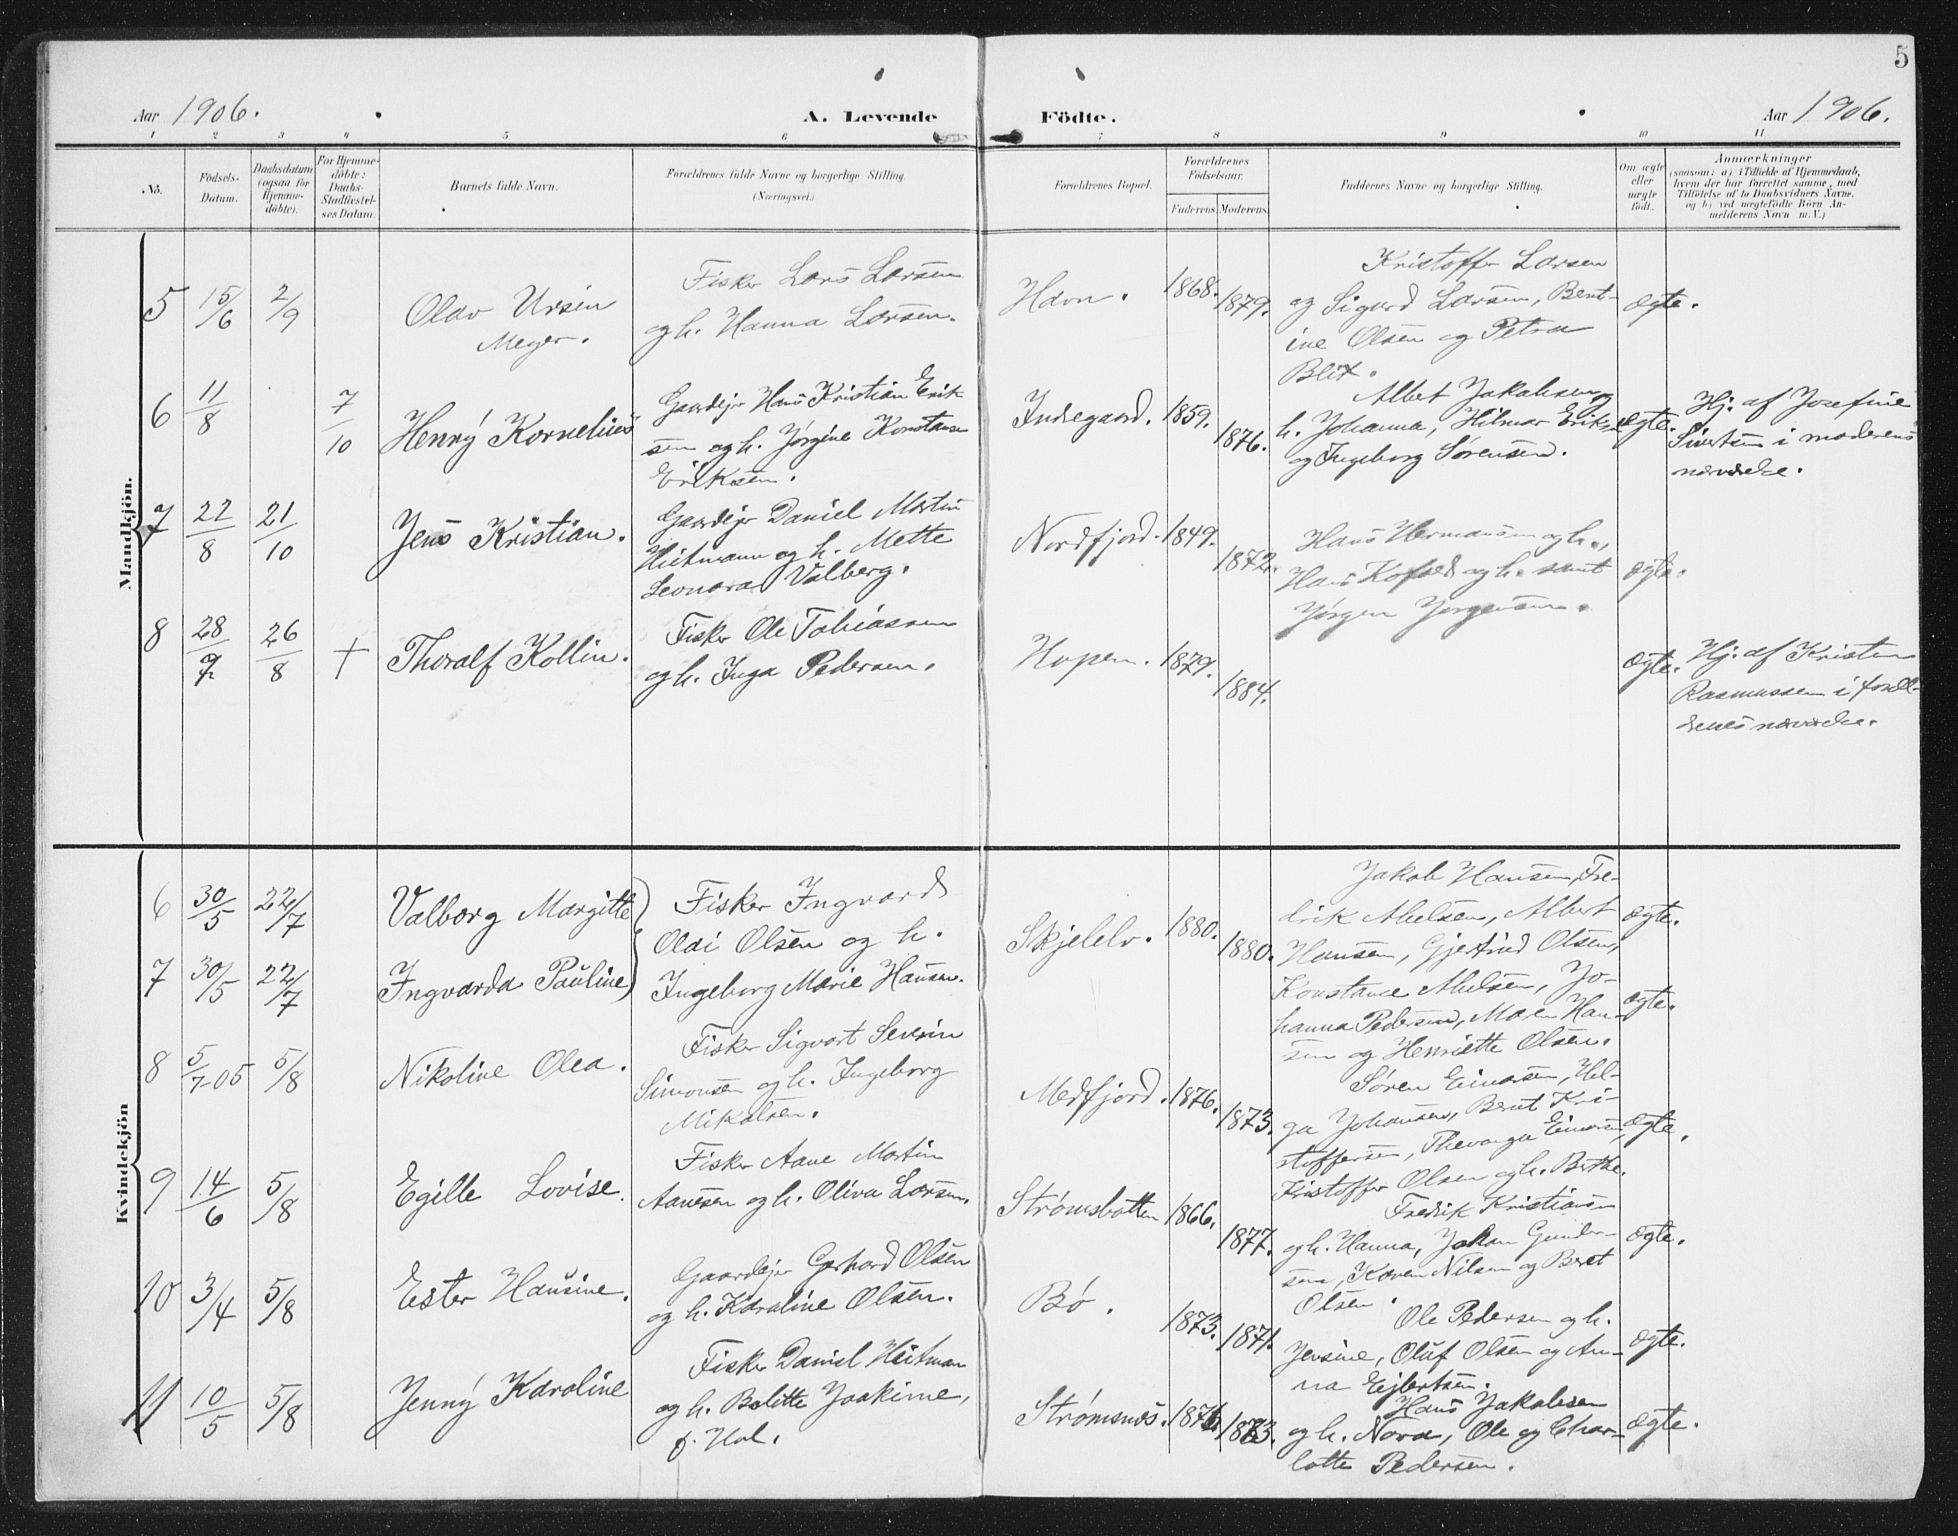 5
Aar 1906.
A. Levende Födte.
Aar 1906.
1 2 3 4 5 6 7 8 9 10 11
No.
Födsels-
Datum.
Daabsdatum
(ogsaa for
Hjemme-
döbte).
For Hjemme-
döbte:
Daabs-
Stadfæstel-
ses Datum.
Barnets fulde Navn.
Forældrenes fulde Navne og borgerlige Stilling
(Næringsvei.)
Forældrenes Bopæl.
Forældrenes
Födselsaar.
Faderens. Moderens.
Faddernes Navne og borgerlige Stilling.
Om ægte
eller
uægte
födt.
Anmærkninger
(saasom: a) i Tilfælde af Hjemmedaab,
hvem der har forrettet samme, med
Tilföielse af to Daabsvidners Navne,
og b) ved uægtefödte Börn An-
melderens Navn m. V.)
Mandkjön.
5 15/6 2/9
Olav Ursin
Meyer.
Fisker Lars Larsen
og h. Hanna Larsen.
Havn. 1868. 1879.
Kristoffer Larsen
og Sigurd Larsen, Bent-
ine Olsen og Petra
Blix.
ægte.
6 11/8 7/10
Henrÿ Kornelius
Gaardejer Hans Kristian Erik
sen og h. Jørgine Konstanse
Eriksen.
Indregaard. 1859. 1876.
Albert Jakobsen og
h. Johanna, Hilmar Eriksen
og Ingeborg Sørensen.
ægte.
Hj. af Josefine
Sivertsen i moderens
nærværelse.
7 22/8 21/10
Jens Kristian.
Gaardejer Daniel Martin
Heitmann og h. Mette
Leonora Valberg.
Nordfjord. 1849. 1872.
Hans Hermansen og h.,
Hans Kofoed og h. samt
Jørgen Jørgensen.
ægte.
8 28/7 26/8 +
Thoralf Kollin.
Fisker Ole Tobiassen
og h. Inga Pedersen.
Hopen. 1879. 1884.
ægte.
Hj. af Kristen
Rasmussen i foræl-
drenes nærværelse.
Kvindekjön
6 30/5 22/7
Valborg Margitte
Fisker Ingvard
Oldi Olsen og h.
Ingeborg Marie Hansen.
Skjelelv. 1880. 1880.
Jakob Hansen, Fre-
drik Abelsen, Albert
Hansen, Gjertrud Olsen,
ægte.
7 30/5 22/7
Ingvarda Pauline
Konstance Abelsen, Jo-
hanna Pedersen, Maren Han-
sen og Henriette Olsen.
ægte.
8 5/7-05 5/8
Nikoline Olea.
Fisker Sigvart Severin
Simonsen og h. Ingeborg
Mikalsen.
Medfjord. 1876. 1873.
Søren Einarsen, Hel-
ga Johansen, Berit Kri-
stoffersen, Einarsen,
Kristoffer Olsen og h. Berthe.
ægte.
9 14/6 5/8
Egille Lovise.
Fisker Aane Martin
Aanesen og h. Oliva Larsen.
Strømsbotten 1866. 1877.
Fredrik Kristiansen
og h. Hanna, Johan Gunder-
sen, Karen Nilsen og Berit
Olsen.
ægte.
10 3/4 5/8
Ester Hansine.
Gaardejer Gerhard Olsen
og h. Karoline Olsen.
Bø. 1873. 1871.
Ole Pedersen og h.
Jensine, Oluf Olsen og An-
na Ejlertsen.
ægte.
11 10/5 5/8
Jennÿ Karoline
Fisker Daniel Heitman
og h. Bolette Joakime,
f. Hol.
Strømsnes. 1876. 1873.
Hans Jakobsen
og h. Nora, Ole og Char-
lotte Pedersen.
ægte.